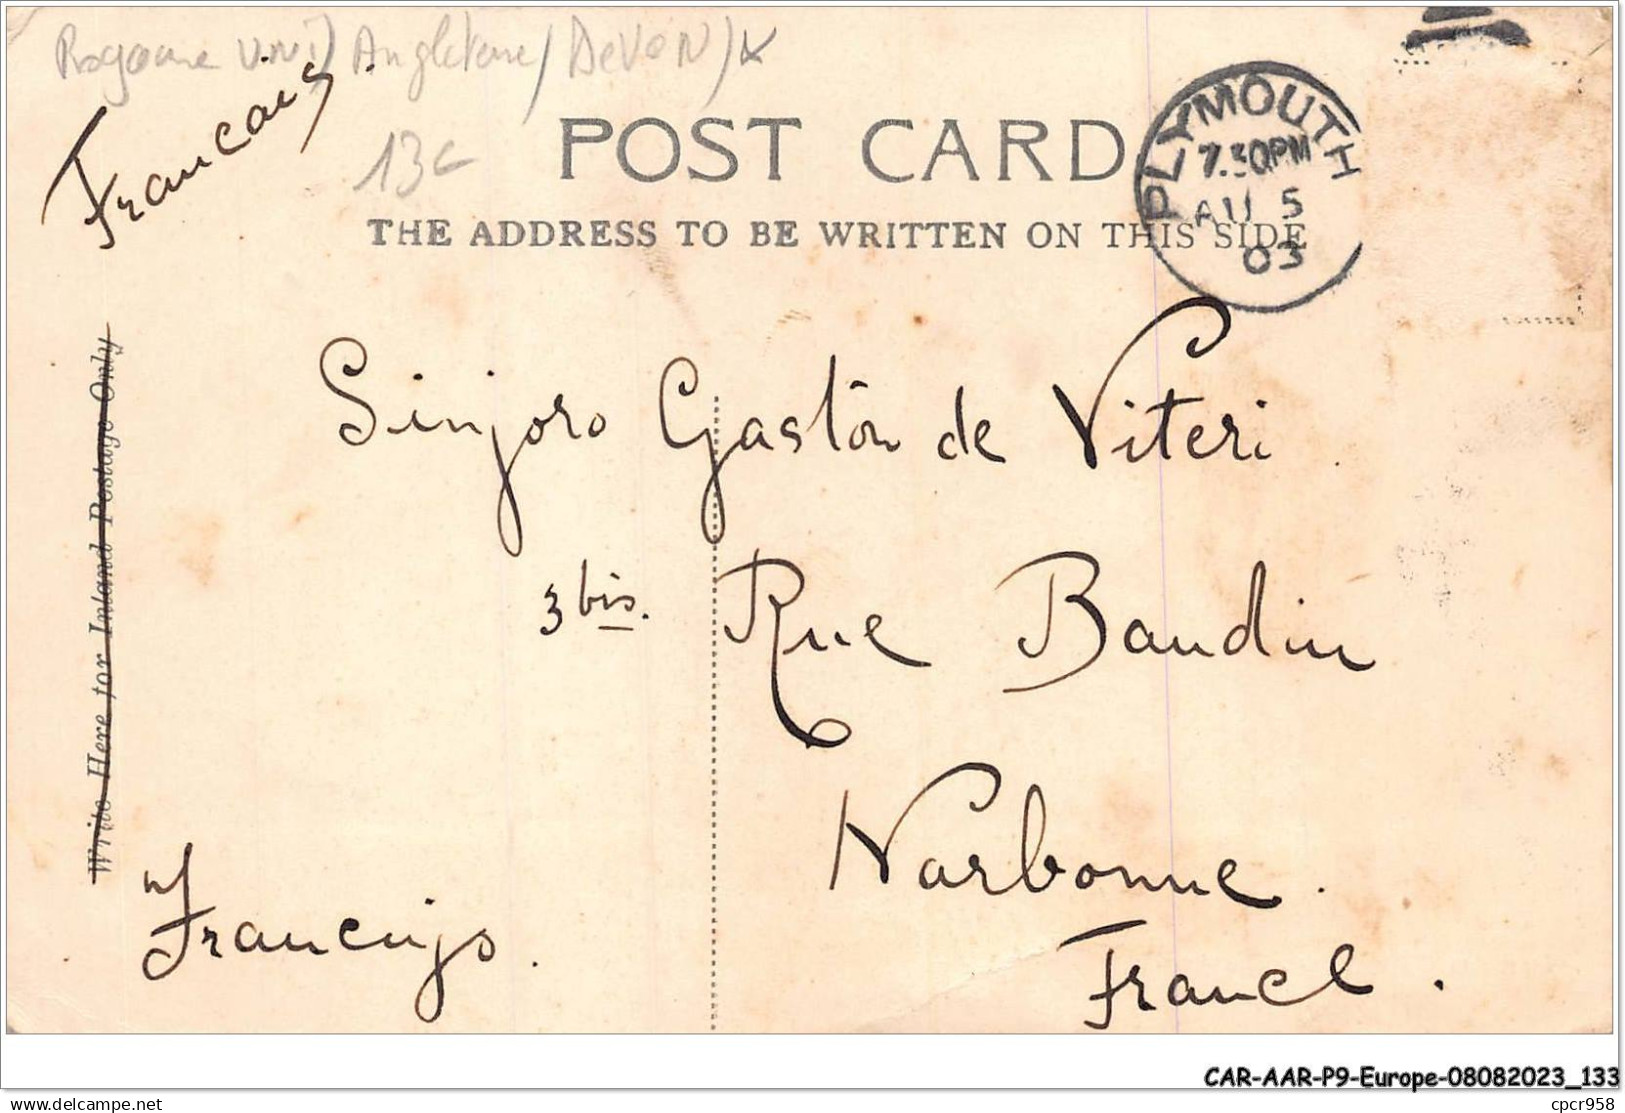 Royaume Uni) Angleterre / Devon)
Francais
13c
POST CARD
THE ADDRESS TO BE WRITTEN ON THIS SIDE
PLYMOUTH
7.30PM
AU 5
03
Write Here for Inland Postage Only
Sinjoro Gaston de Viteri
3 bis. Rue Baudin
Narbonne.
Francujo.
France.
CAR-AAR-P9-Europe-08082023_133
delcampe.net
cpcr958